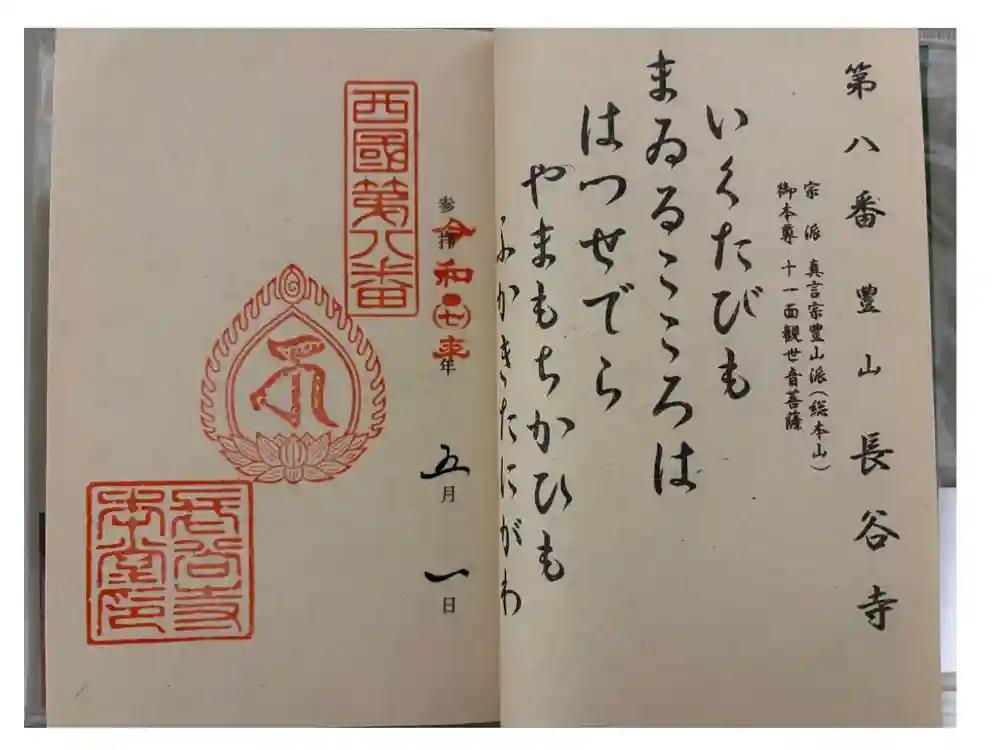 第八番 豊山 長谷寺
宗派 真言宗豊山派(総本山)
御本尊 十一面觀世音菩薩
いくたびも
まゐるこころは
はつせでら
やまもちかひも
ふかきたにがわ
参拝 令和七年 五月 一日
西國第八番
長谷寺
本堂印